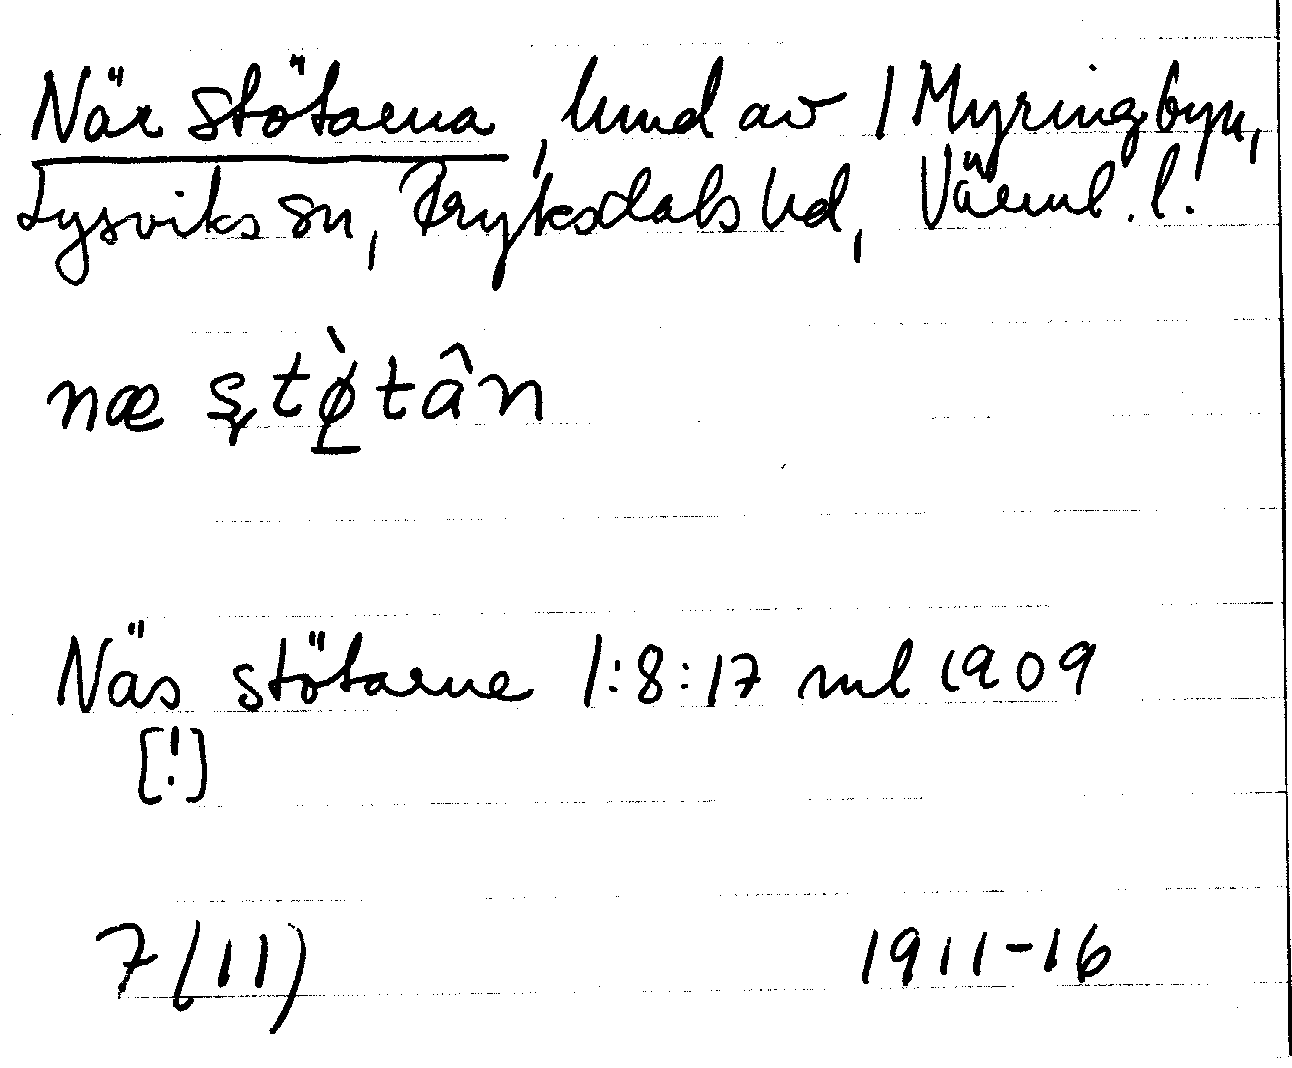 När stötarna, lund av 1 Myringbyn,
Lysviks sn, Fryksdals hd, Värml. l.
næ ştø̀tân
Näs stötarne 1:8:17 ml 1909
[!]
7(11) 1911-16